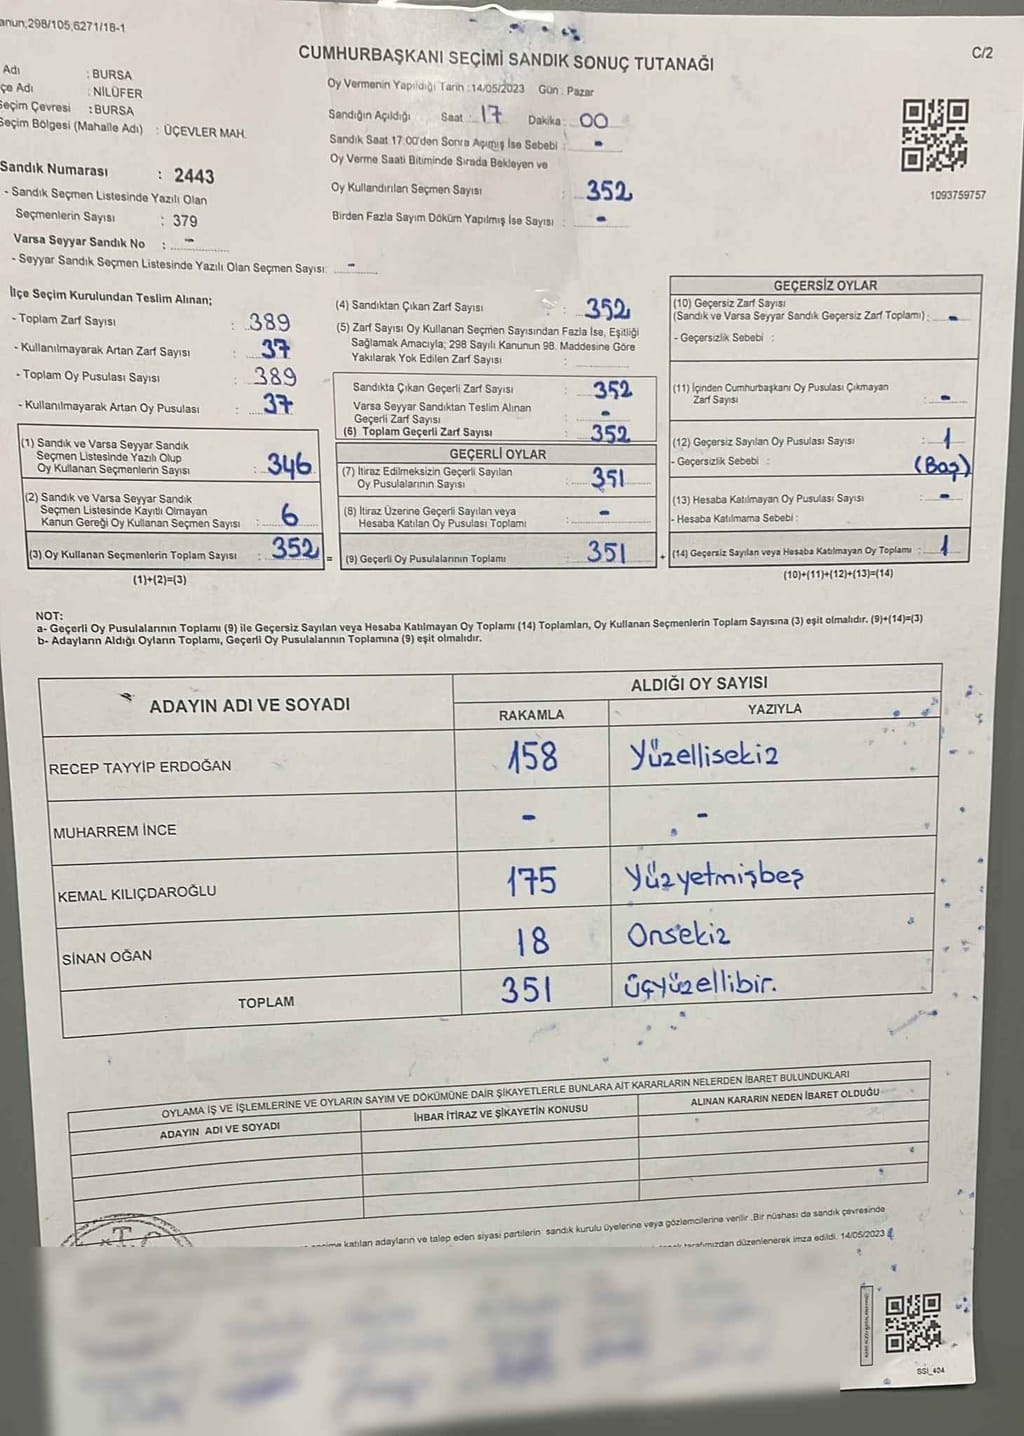 anun;298/105;6271/18-1
CUMHURBAŞKANI SEÇİMİ SANDIK SONUÇ TUTANAĞI
C/2
Adı : BURSA
çe Adı : NİLÜFER
Seçim Çevresi : BURSA
Seçim Bölgesi (Mahalle Adı) : ÜÇEVLER MAH.
Oy Vermenin Yapıldığı Tarih :14/05/2023 Gün : Pazar
Sandığın Açıldığı Saat : 17 Dakika : 00
Sandık Saat 17:00'den Sonra Açımış İse Sebebi : -
Oy Verme Saati Bitiminde Sırada Bekleyen ve
Oy Kullandırılan Seçmen Sayısı : 352
Birden Fazla Sayım Döküm Yapılmış İse Sayısı : -
1093759757
Sandık Numarası : 2443
- Sandık Seçmen Listesinde Yazılı Olan
Seçmenlerin Sayısı : 379
Varsa Seyyar Sandık No : -
- Seyyar Sandık Seçmen Listesinde Yazılı Olan Seçmen Sayısı: -
İlçe Seçim Kurulundan Teslim Alınan;
- Toplam Zarf Sayısı : 389
- Kullanılmayarak Artan Zarf Sayısı : 37
- Toplam Oy Pusulası Sayısı : 389
- Kullanılmayarak Artan Oy Pusulası : 37
(1) Sandık ve Varsa Seyyar Sandık
Seçmen Listesinde Yazılı Olup
Oy Kullanan Seçmenlerin Sayısı : 346
(2) Sandık ve Varsa Seyyar Sandık
Seçmen Listesinde Kayıtlı Olmayan
Kanun Gereği Oy Kullanan Seçmen Sayısı : 6
(3) Oy Kullanan Seçmenlerin Toplam Sayısı : 352 =
(1)+(2)=(3)
(4) Sandıktan Çıkan Zarf Sayısı : 352
(5) Zarf Sayısı Oy Kullanan Seçmen Sayısından Fazla İse, Eşitliği
Sağlamak Amacıyla; 298 Sayılı Kanunun 98. Maddesine Göre
Yakılarak Yok Edilen Zarf Sayısı :
Sandıkta Çıkan Geçerli Zarf Sayısı : 352
Varsa Seyyar Sandıktan Teslim Alınan
Geçerli Zarf Sayısı : -
(6) Toplam Geçerli Zarf Sayısı : 352
GEÇERLİ OYLAR
(7) İtiraz Edilmeksizin Geçerli Sayılan
Oy Pusulalarının Sayısı : 351
(8) İtiraz Üzerine Geçerli Sayılan veya
Hesaba Katılan Oy Pusulası Toplamı : -
(9) Geçerli Oy Pusulalarının Toplamı : 351 +
GEÇERSİZ OYLAR
(10) Geçersiz Zarf Sayısı
(Sandık ve Varsa Seyyar Sandık Geçersiz Zarf Toplamı) : -
- Geçersizlik Sebebi :
(11) İçinden Cumhurbaşkanı Oy Pusulası Çıkmayan
Zarf Sayısı : -
(12) Geçersiz Sayılan Oy Pusulası Sayısı : 1
- Geçersizlik Sebebi : (Boş)
(13) Hesaba Katılmayan Oy Pusulası Sayısı : -
- Hesaba Katılmama Sebebi :
(14) Geçersiz Sayılan veya Hesaba Katılmayan Oy Toplamı : 1
(10)+(11)+(12)+(13)=(14)
NOT:
a- Geçerli Oy Pusulalarının Toplamı (9) ile Geçersiz Sayılan veya Hesaba Katılmayan Oy Toplamı (14) Toplamları, Oy Kullanan Seçmenlerin Toplam Sayısına (3) eşit olmalıdır. (9)+(14)=(3)
b- Adayların Aldığı Oyların Toplamı, Geçerli Oy Pusulalarının Toplamına (9) eşit olmalıdır.
ADAYIN ADI VE SOYADI
ALDIĞI OY SAYISI
RAKAMLA YAZIYLA
RECEP TAYYİP ERDOĞAN 158 Yüzellisekiz
MUHARREM İNCE - -
KEMAL KILIÇDAROĞLU 175 Yüzyetmişbeş
SİNAN OĞAN 18 Onsekiz
TOPLAM 351 üçyüzellibir.
OYLAMA İŞ VE İŞLEMLERİNE VE OYLARIN SAYIM VE DÖKÜMÜNE DAİR ŞİKAYETLERLE BUNLARA AİT KARARLARIN NELERDEN İBARET BULUNDUKLARI
ADAYIN ADI VE SOYADI
İHBAR İTİRAZ VE ŞİKAYETİN KONUSU
ALINAN KARARIN NEDEN İBARET OLDUĞU
katılan adayların ve talep eden siyasi partilerin sandık kurulu üyelerine veya gözlemcilerine verilir .Bir nüshası da sandık çevresinde
tarafımızdan düzenlenerek imza edildi. 14/05/2023
T.C.
SSI_404